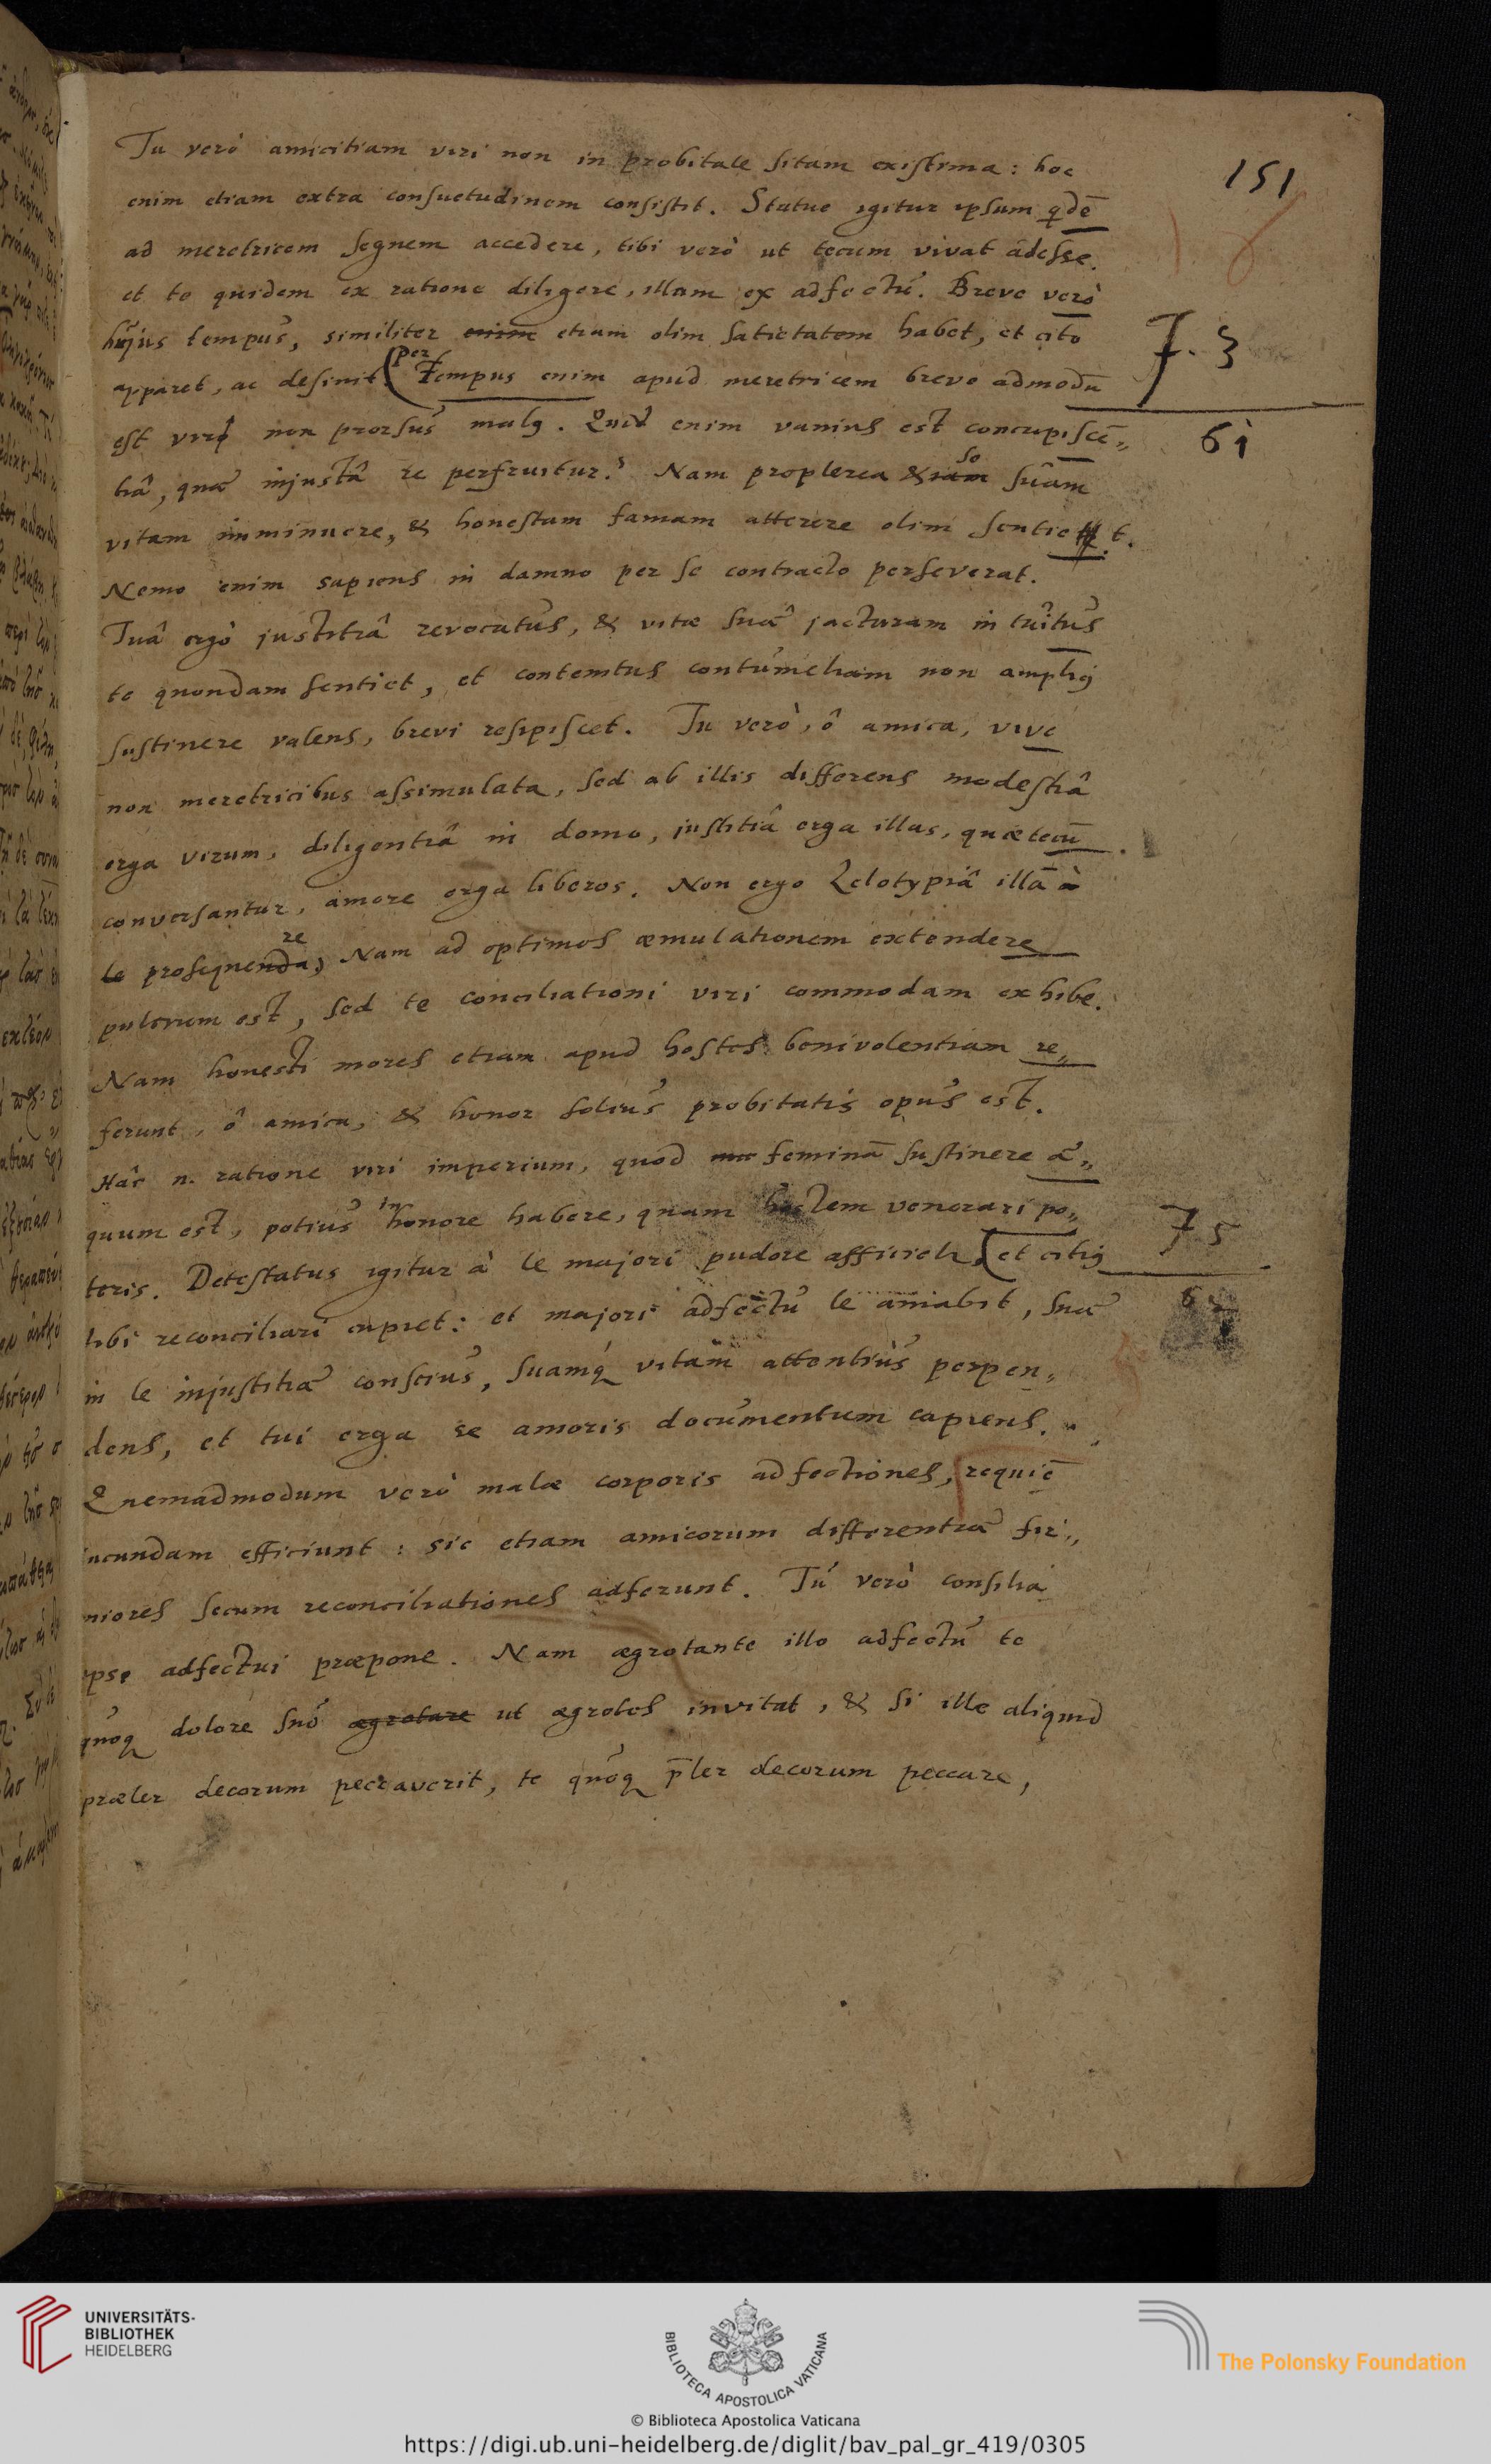 151
Tu verò amicitiam viri non in probitate sitam existima: hoc
enim etiam extra consuetudinem consistit. Statue igitur ipsum qdē
ad meretricem segnem accedere, tibi verò ut tecum vivat adesse.
et te quidem ex ratione diligere, illam ex adfectu. Breve verò
hujus tempus, similiter enim etiam olim satietatem habet, et cito
7. 3
apparet, ac desinit. (per Tempus enim apud meretricem breve admodū
61
est viro non prorsus malo. Quid enim vanius est concupiscē„
tiâ, quae injustâ re perfruitur? Nam propterea & se suam
vitam imminuere, & honestam famam atterere olim sentiet.
Nemo enim sapiens in damno per se contracto perseverat.
Tuâ ergò justitiâ revocatus, & vitae suae jacturam intuitus
te quondam sentiet, et contemtus contumeliam non ampliꝰ
sustinere valens, brevi resipiscet. Tu verò, ô amica, vive
non meretricibus assimulata, sed ab illis differens modestiâ
erga virum, diligentiâ in domo, justitiâ erga illas, quae tecū
conversantur, amore erga liberos. Non ergo Zelotypiâ illā à
te prosequenda, re Nam ad optimos aemulationem extendere
pulcrum est, sed te conciliationi viri commodam exhibe.
Nam honesti mores etiam apud hostes benivolentiam re„
ferunt, ô amica, & honor solius probitatis opus est.
Hâc n. ratione viri imperium, quod feminā sustinere ae„
quum est, potius in honore habere, quam hostem venerari po„
75
teris. Detestatus igitur à te majori pudore afficiet, (et citiꝰ
6
tibi reconciliari cupiet: et majori adfectu te amabit, suae
in te injustitiae conscius, suamq́ vitam attentius perpen„
dens, et tui erga se amoris documentum capiens.
Quemadmodum verò malae corporis adfectiones, requiē
jucundam efficiunt: sic etiam amicorum differentiae fir„
miores secum reconciliationes adferunt. Tu verò consilia
ipse adfectui praepone. Nam aegrotante illo adfectu te
quoq dolore suo aegrotare ut aegrotes invitat, & si ille aliquid
praeter decorum peccaverit, te quoq p̄ter decorum peccare,
UNIVERSITÄTS-
BIBLIOTHEK
HEIDELBERG
BIBLIOTECA APOSTOLICA VATICANA
The Polonsky Foundation
© Biblioteca Apostolica Vaticana
https://digi.ub.uni-heidelberg.de/diglit/bav_pal_gr_419/0305